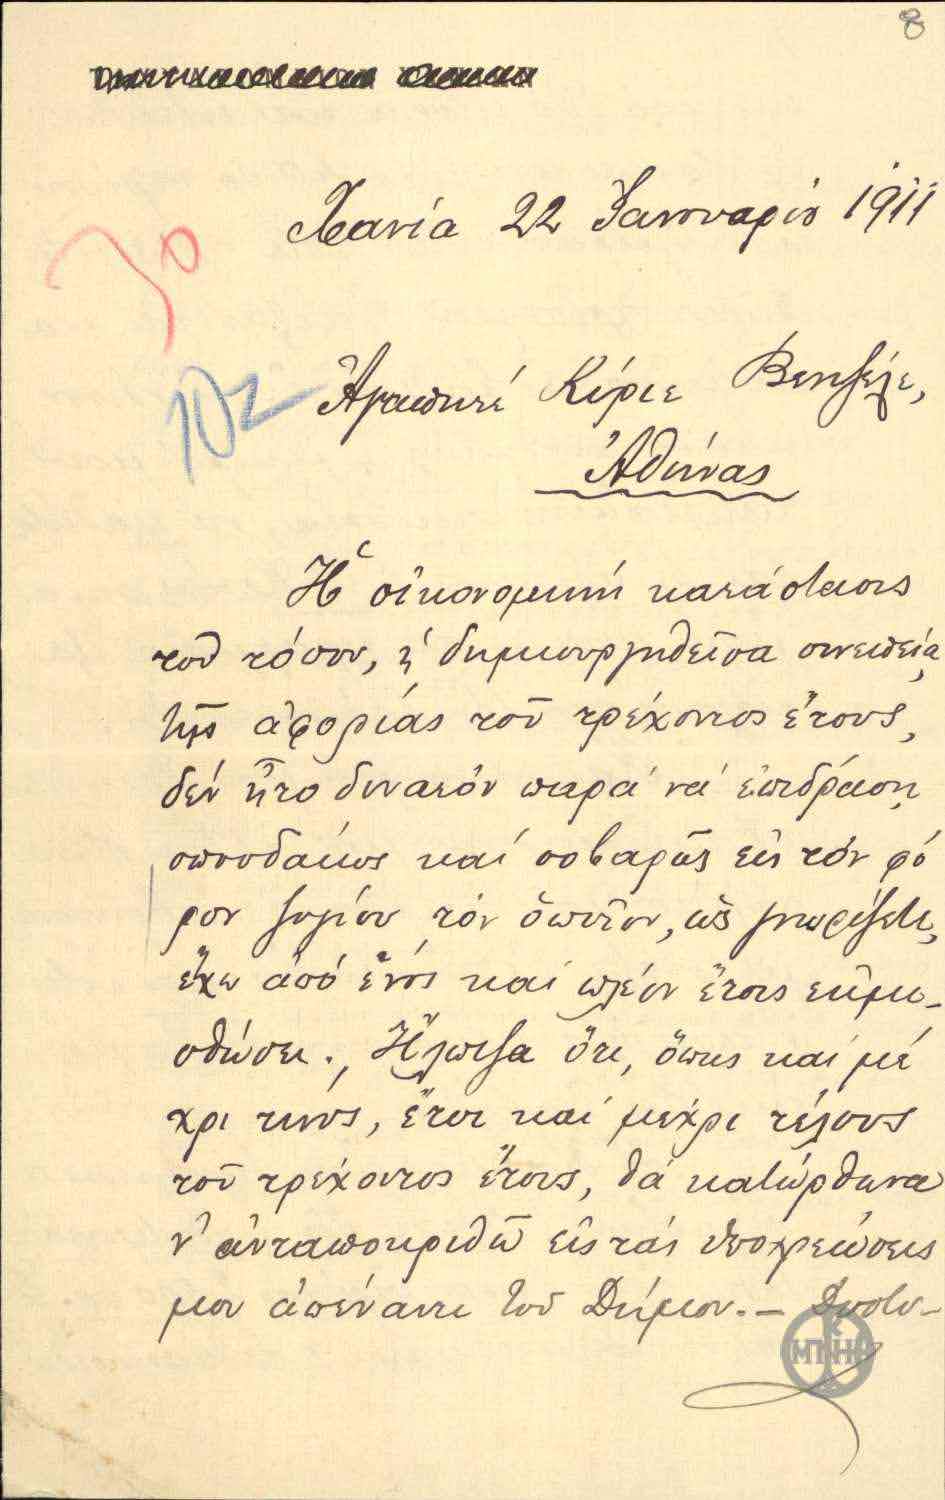 8
Χανία 22 Ἰανουαρίου 1911
30
102
Ἀγαπητέ Κύριε Βενιζέλε,
Ἀθήνας
Ἡ οἰκονομική κατάστασις
τοῦ τόπου, ἡ δημιουργηθεῖσα συνεπείᾳ
τῆς ἀφορίας τοῦ τρέχοντος ἔτους,
δέν ἦτο δυνατόν παρά νά ἐπιδράσῃ
σπουδαίως καί σοβαρῶς εἰς τόν φό
ρον ζυγίου τόν ὁποῖον, ὡς γνωρίζετε,
ἔχω ἀπό ἑνός καί πλέον ἔτους ἐκμι-
σθώσει. Ἤλπιζα ὅτι, ὅπως καί μέ
χρι τινός, ἔτσι καί μέχρι τέλους
τοῦ τρέχοντος ἔτους, θά κατώρθωνα
ν' ἀνταποκριθῶ εἰς τάς ὑποχρεώσεις
μου ἀπέναντι τοῦ Δήμου.— Δυστυ-
ΜΠΗ